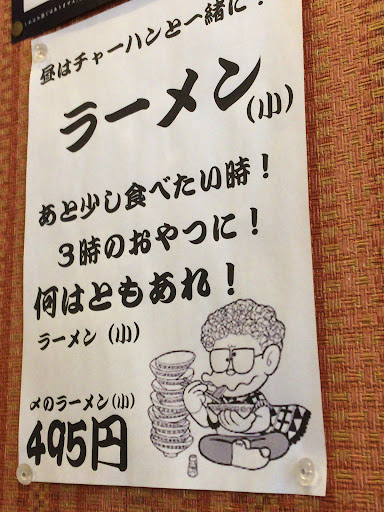 昼はチャーハンと一緒に！
ラーメン(小)
あと少し食べたい時！
３時のおやつに！
何はともあれ！
ラーメン（小）
〆のラーメン(小)
495円